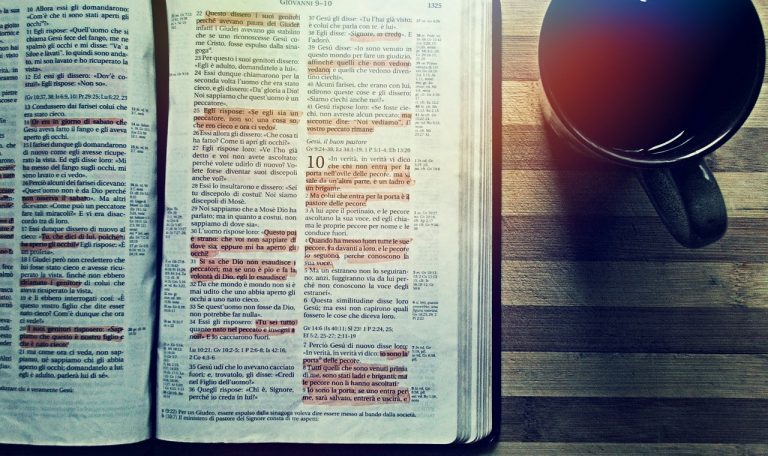 GIOVANNI 9–10
1325
10 Allora essi gli domandarono:
«Com'è che ti sono stati aperti
gli occhi?»
11 Egli rispose: «Quell'uomo che si
chiama Gesù fece del fango, me ne
spalmò gli occhi e mi disse: "Va' a
Siloe e lavati". Io quindi sono anda-
to, mi son lavato e ho ricuperato la
vista».
12 Ed essi gli dissero: «Dov'è co-
stui?» Egli rispose: «Non so».
13 Condussero dai farisei colui che
era stato cieco.
14 Or era in giorno di sabato che
Gesù aveva fatto il fango e gli aveva
aperto gli occhi.
15 I farisei dunque gli domandarono
di nuovo come egli avesse ricupe-
rato la vista. Ed egli disse loro: «Mi
ha messo del fango sugli occhi, mi
sono lavato e ci vedo».
16 Perciò alcuni dei farisei dicevano:
«Quest'uomo non è da Dio perché
non osserva il sabato». Ma altri
dicevano: «Come può un peccatore
fare tali miracoli?» E vi era disac-
cordo tra di loro.
17 Essi dunque dissero di nuovo al
cieco: «Tu, che dici di lui, poiché
ha aperto gli occhi?» Egli rispose: «È
un profeta».
18 I Giudei però non credettero che
lui fosse stato cieco e avesse ricupe-
rato la vista, finché non ebbero
chiamato i genitori di colui che
aveva ricuperato la vista,
19 e li ebbero interrogati così: «È
questo il vostro figlio che dite esser
nato cieco? Com'è dunque che ora
ci vede?»
20 I suoi genitori risposero: «Sap-
piamo che questo è nostro figlio e
che è nato cieco;
21 ma come ora ci veda, non sap-
piamo, né sappiamo chi gli abbia
aperto gli occhi; domandatelo a lui;
egli è adulto, parlerà lui di sé».
22 Questo dissero i suoi genitori
perché avevano paura dei Giudei;
infatti i Giudei avevano già stabilito
che se uno riconoscesse Gesù co-
me Cristo, fosse espulso dalla sina-
goga.
23 Per questo i suoi genitori dissero:
«Egli è adulto, domandatelo a lui».
24 Essi dunque chiamarono per la
seconda volta l'uomo che era stato
cieco, e gli dissero: «Da' gloria a Dio!
Noi sappiamo che quest'uomo è un
peccatore».
25 Egli rispose: «Se egli sia un
peccatore, non so; una cosa so,
che ero cieco e ora ci vedo».
26 Essi allora gli dissero: «Che cosa ti
ha fatto? Come ti aprì gli occhi?»
27 Egli rispose loro: «Ve l'ho già
detto e voi non avete ascoltato;
perché volete udirlo di nuovo? Vo-
lete forse diventare suoi discepoli
anche voi?»
28 Essi lo insultarono e dissero: «Sei
tu discepolo di costui! Noi siamo
discepoli di Mosè.
29 Noi sappiamo che a Mosè Dio ha
parlato; ma in quanto a costui, non
sappiamo di dove sia».
30 L'uomo rispose loro: «Questo poi
è strano: che voi non sappiate di
dove sia, eppure mi ha aperto gli
occhi!
31 Si sa che Dio non esaudisce i
peccatori; ma se uno è pio e fa la
volontà di Dio, egli lo esaudisce.
32 Da che mondo è mondo non si è
mai udito che uno abbia aperto gli
occhi a uno nato cieco.
33 Se quest'uomo non fosse da Dio,
non potrebbe far nulla».
34 Essi gli risposero: «Tu sei tutto
quanto nato nel peccato e insegni a
noi?» E lo cacciarono fuori.
Lu 10:21; Gv 10:2-5; 1 P 2:6-8;
35 Gesù udì che lo avevano cacciato
fuori; e, trovatolo, gli disse: «Credi
nel Figlio dell'uomo?»
36 Quegli rispose: «Chi è, Signore,
perché io creda in lui?»
37 Gesù gli disse: «Tu l'hai già visto;
è colui che parla con te, è lui».
38 Egli disse: «Signore, io credo». E
l'adorò.
39 Gesù disse: «Io sono venuto in
questo mondo per fare un giudizio,
affinché quelli che non vedono
vedano e quelli che vedono diven-
tino ciechi».
40 Alcuni farisei, che erano con lui,
udirono queste cose e gli dissero:
«Siamo ciechi anche noi?»
41 Gesù rispose loro: «Se foste cie-
chi, non avreste alcun peccato; ma
siccome dite: "Noi vediamo", il
vostro peccato rimane.
Gesù, il buon pastore
10 «In verità, in verità vi dico
che chi non entra per la porta
nell'ovile delle pecore, ma vi
sale da un'altra parte, è un ladro e
un brigante.
2 Ma colui che entra per la porta è il
pastore delle pecore.
3 A lui apre il portinaio, e le pecore
ascoltano la sua voce, ed egli chia-
ma le proprie pecore per nome e le
conduce fuori.
4 Quando ha messo fuori tutte le sue
pecore, va davanti a loro, e le pecore
lo seguono, perché conoscono la
sua voce.
5 Ma un estraneo non lo seguiran-
no; anzi, fuggiranno via da lui per-
ché non conoscono la voce degli
estranei».
6 Questa similitudine disse loro
Gesù; ma essi non capirono quali
fossero le cose che diceva loro.
7 Perciò Gesù di nuovo disse loro:
«In verità, in verità vi dico: io sono la
porta delle pecore.
8 Tutti quelli che sono venuti prima
di me, sono stati ladri e briganti; ma
le pecore non li hanno ascoltati.
9 Io sono la porta; se uno entra per
me, sarà salvato, entrerà e uscirà, e
(9:22) Per un Giudeo, essere espulso dalla sinagoga voleva dire essere messo al bando dalla società.